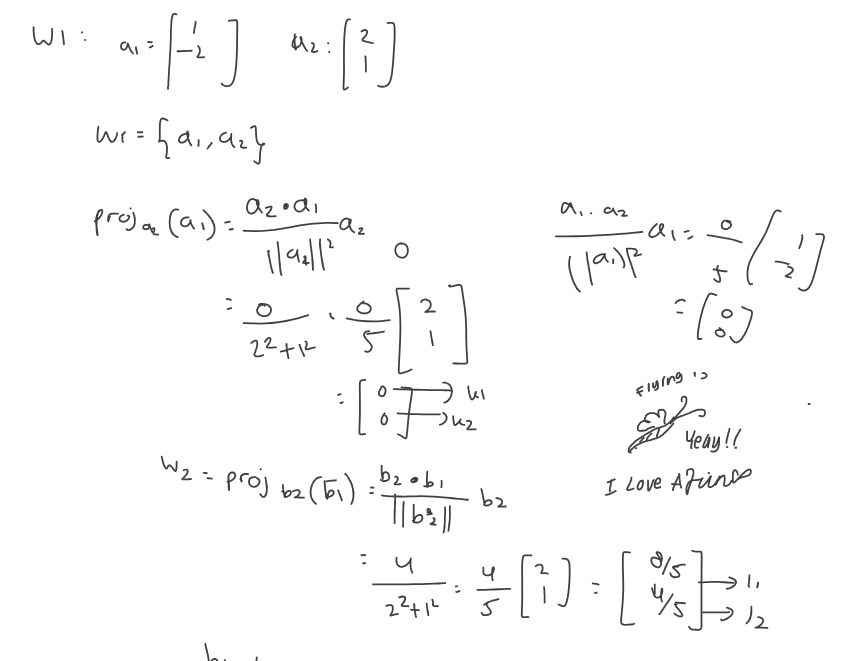 W1: a₁ = [1 -2] a₂: [2 1]
W1 = {a₁, a₂}
proj a₂ (a₁) = a₂•a₁ / ||a₂||² a₂
0
= 0 / 2²+1² . 0/5 [2 1]
= [0 0] → k1 → k2
a₁ . a₂ / ||a₁||² a₁ = 0/5 [1 -2]
= [0 0]
Flying is
Yeay!!
I Love
W₂ = proj b2 (b₁) = b₂•b₁ / ||b₂²|| b₂
= 4 / 2²+1² = 4/5 [2 1] = [8/5 4/5] → l₁ → l₂